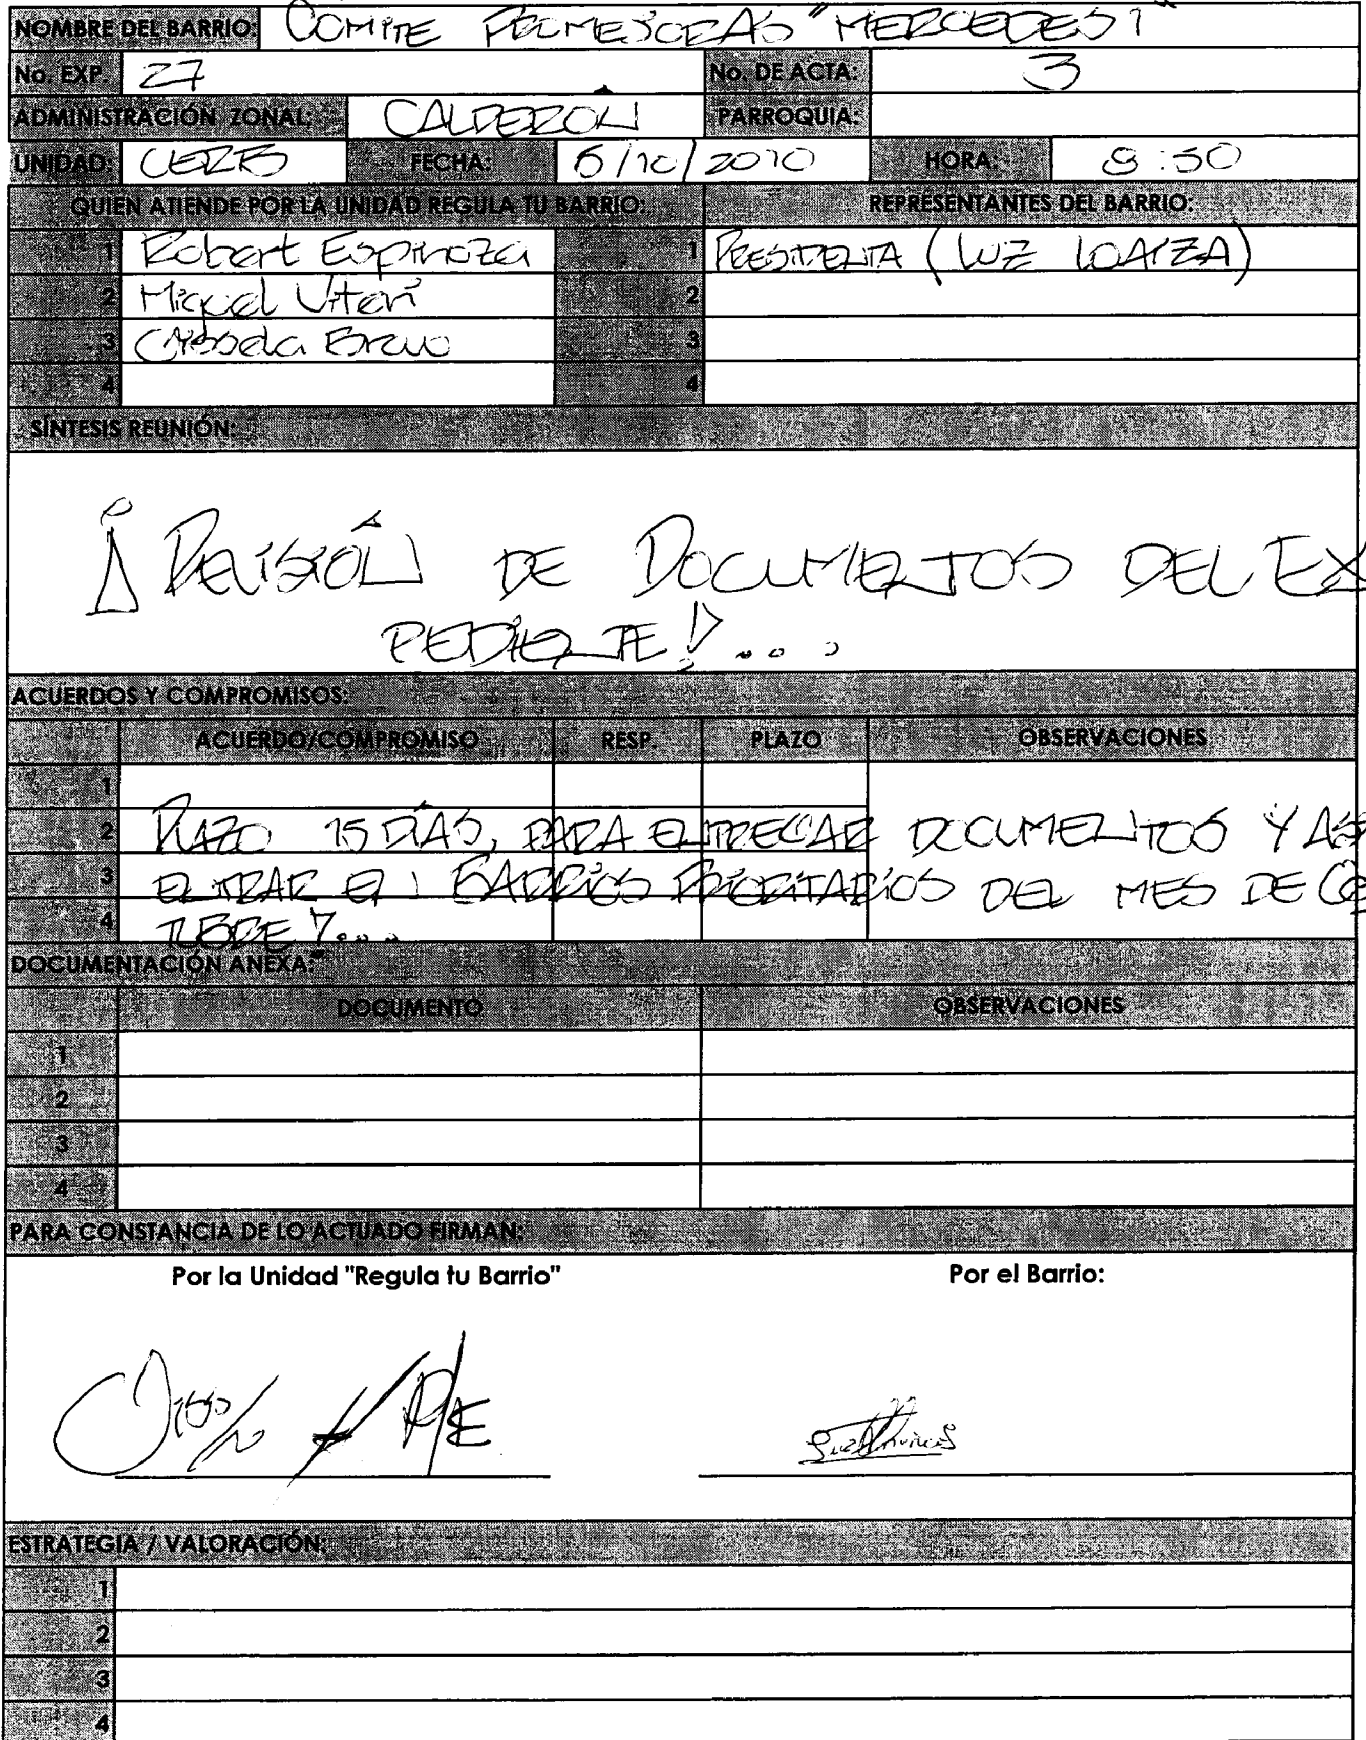 NOMBRE DEL BARRIO: COMITE PROMEJORAS "MERCEDES 1"
No. EXP. 27 No. DE ACTA: 3
ADMINISTRACIÓN ZONAL: CALDERÓN PARROQUIA:
UNIDAD: UERB FECHA: 6/10/2010 HORA: 8:50
QUIEN ATIENDE POR LA UNIDAD REGULA TU BARRIO: REPRESENTANTES DEL BARRIO:
1 Robert Espinoza 1 PRESIDENTA (LUZ LOAIZA)
2 Miguel Viteri 2
3 Bravo 3
4 4
SÍNTESIS REUNIÓN:
¡REVISIÓN DE DOCUMENTOS DEL EX
PEDIENTE!...
ACUERDOS Y COMPROMISOS:
ACUERDO/COMPROMISO RESP. PLAZO OBSERVACIONES
1
2 PLAZO 15 DÍAS, PARA ENTREGAR DOCUMENTOS Y ASI
3 ENTRAR EN BARRIOS PRIORITARIOS DEL MES DE OC
4 TUBRE!...
DOCUMENTACIÓN ANEXA:
DOCUMENTO OBSERVACIONES
1
2
3
4
PARA CONSTANCIA DE LO ACTUADO FIRMAN:
Por la Unidad "Regula tu Barrio" Por el Barrio:
ESTRATEGIA / VALORACIÓN:
1
2
3
4